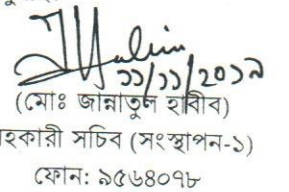 ১১/১১/২০১৯
(মোঃ জান্নাতুল হাবীব)
হকারী সচিব (সংস্থাপন-১)
ফোন: ৯৫৬৪০৭৮